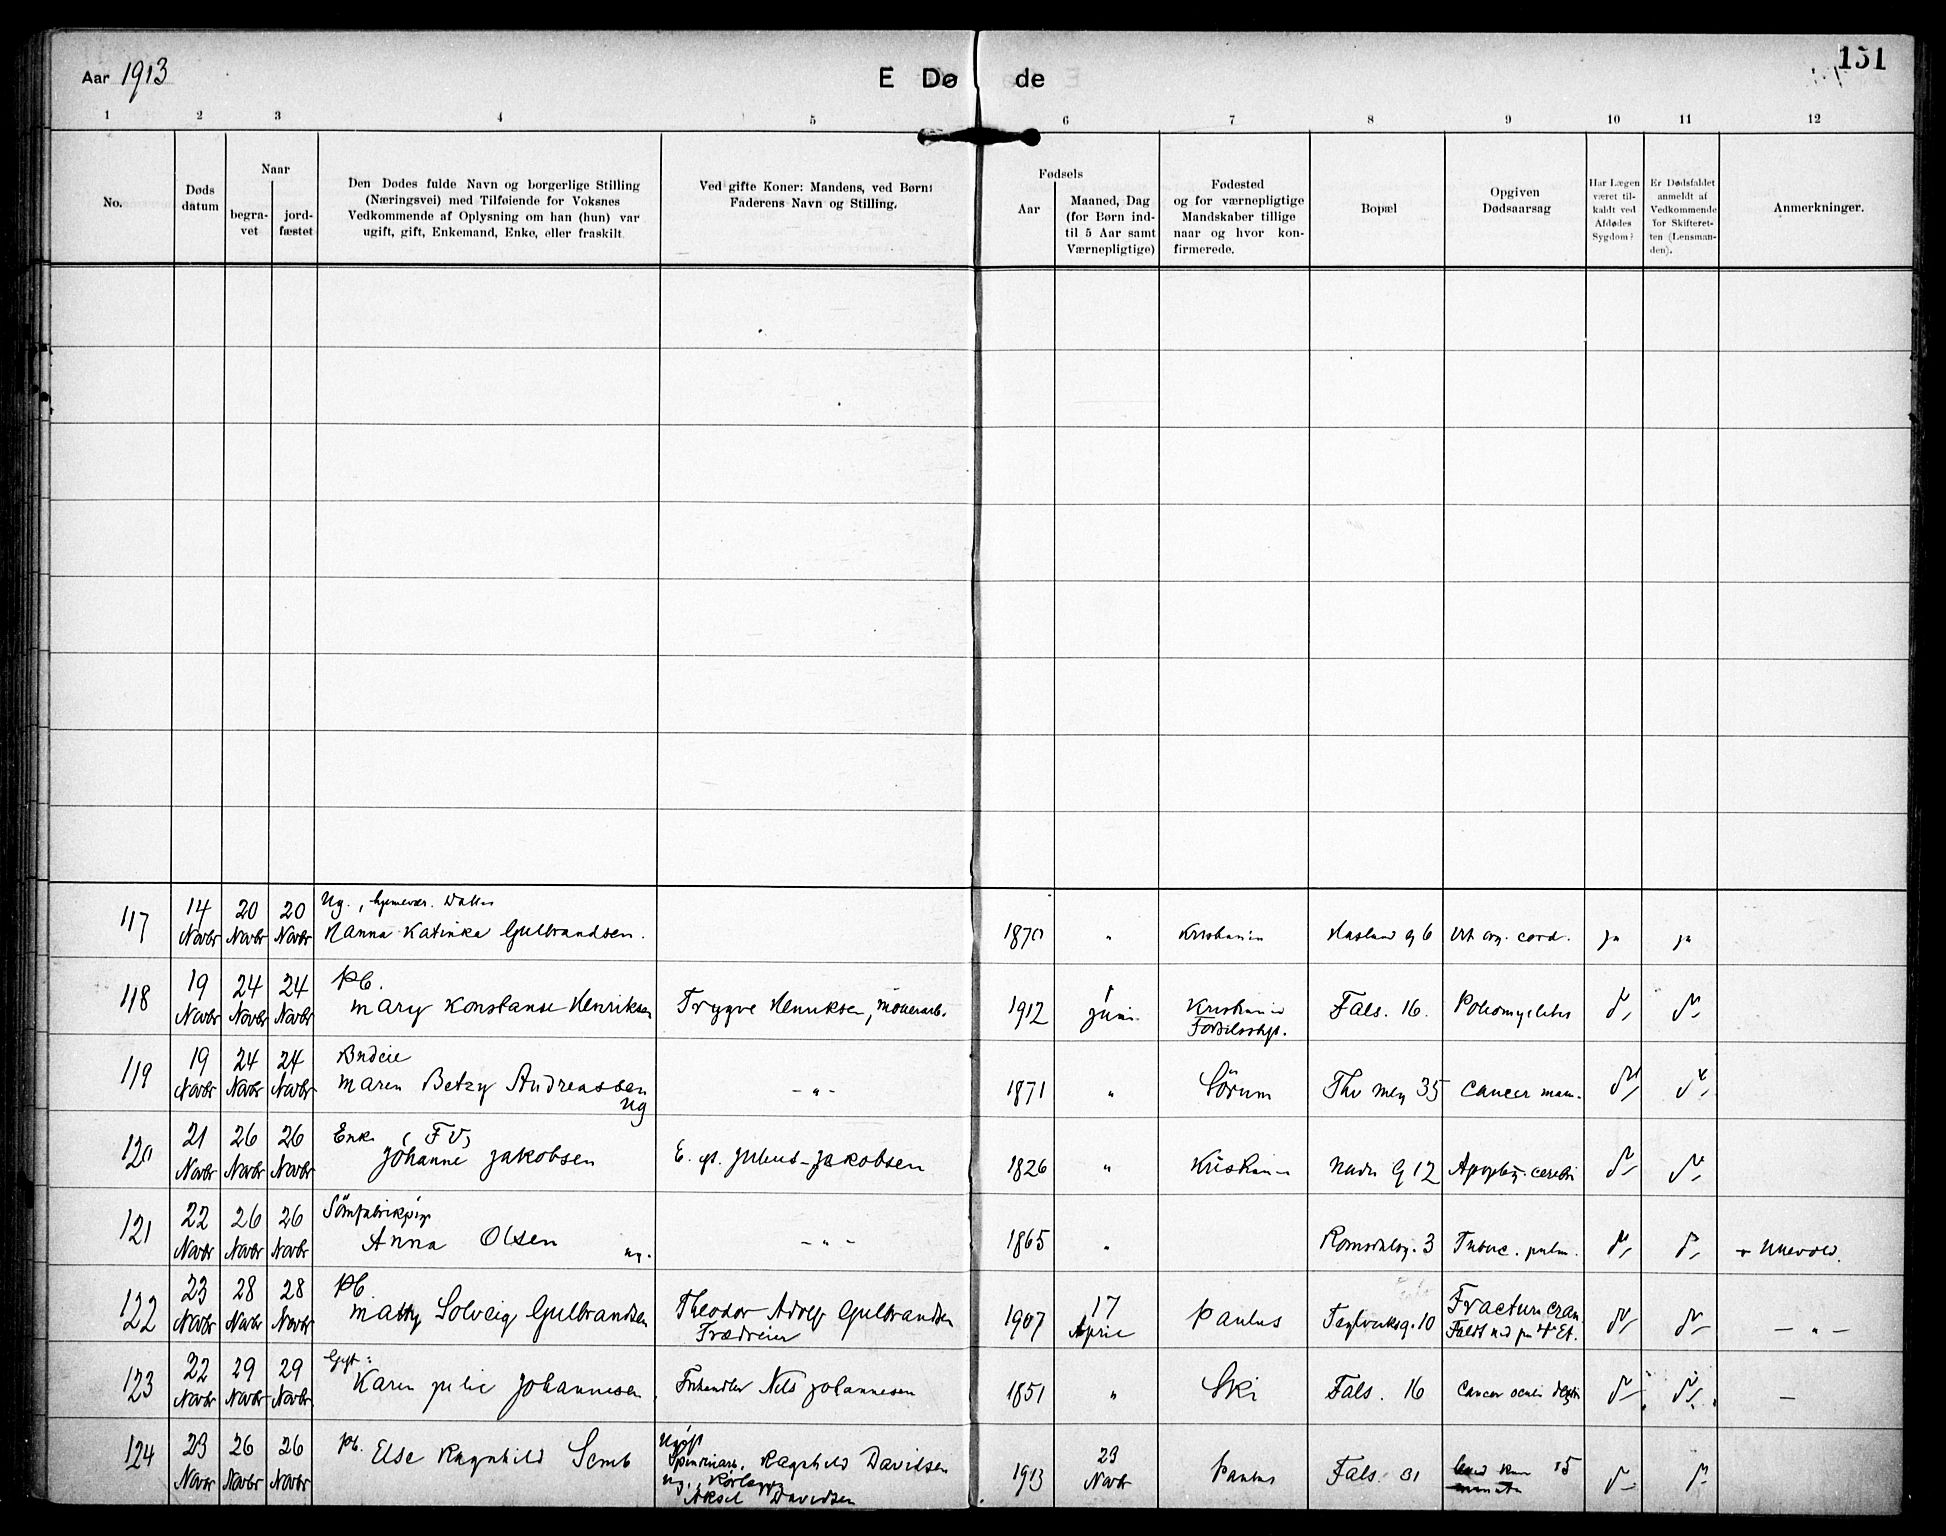 Aar 1913
E Dø de
151
1 2 3 4 5 6 7 8 9 10 11 12
No.
Døds
datum
Naar
begra-
vet
jord-
fæstet
Den Dødes fulde Navn og borgerlige Stilling
(Næringsvei) med Tilføiende for Voksnes
Vedkommende af Oplysning om han (hun) var
ugift, gift, Enkemand, Enke, eller fraskilt.
Ved gifte Koner: Mandens, ved Børn:
Faderens Navn og Stilling.
Fødsels
Aar
Maaned, Dag
(for Børn ind-
til 5 Aar samt
Værnepligtige)
Fødested
og for værnepligtige
Mandskaber tillige
naar og hvor kon-
firmerede.
Bopæl
Opgiven
Dødsaarsag
Har Lægen
været til-
kaldt ved
Afdødes
Sygdom?
Er Dødsfaldet
anmeldt af
Vedkommende
for Skifteret-
ten (Lensman-
den).
Anmerkninger.
Ug.,
117 14 Novbr 20 Novbr 20 Novbr Hanna Katinka Gulbrandsen. 1870 " Kristiania 6 cord. ja ja
Pb.
118 19 Novbr 24 Novbr 24 Novbr Mary Konstanse Henriksen Trygve Henriksen, 1912 Juni Kristiania Fals. 16. Poliomyelitis do do
Budeie
119 19 Novbr 24 Novbr 24 Novbr Maren Betzy Andreassen - " - 1871 " Sörum Thv Meg 35 Cancer mam. do do
Ug
Enke (FV)
120 21 Novbr 26 Novbr 26 Novbr Johanne Jakobsen E. ef. Julius Jakobsen 1826 " Kristiania 12 cerebri do do
121 22 Novbr 26 Novbr 26 Novbr Anna Olsen ug. - " - 1865 " Romsdalsg. 3 Tuberc. pulm. do do Ullevold.
Pb.
122 23 Novbr 28 Novbr 28 Novbr Solveig Gulbrandsen Theodor Adolf Gulbrandsen 1907 17 April Paulus Teglverksg. 10 Fractur cran. do do - " -
Trædreier
Faldt ned fra 4de Et.
Gift:
123 22 Novbr 29 Novbr 29 Novbr Karen Julie Johannesen Nils Johannesen 1851 " Ski Fals. 16 Cancer do do -
Ugift
124 23 Novbr 26 Novbr 26 Novbr Pb. Else Ragnhild Semb Ragnhild Davidsen 1913 23 Novbr Paulus Fals. 31 15 do do
Aksel Davidsen